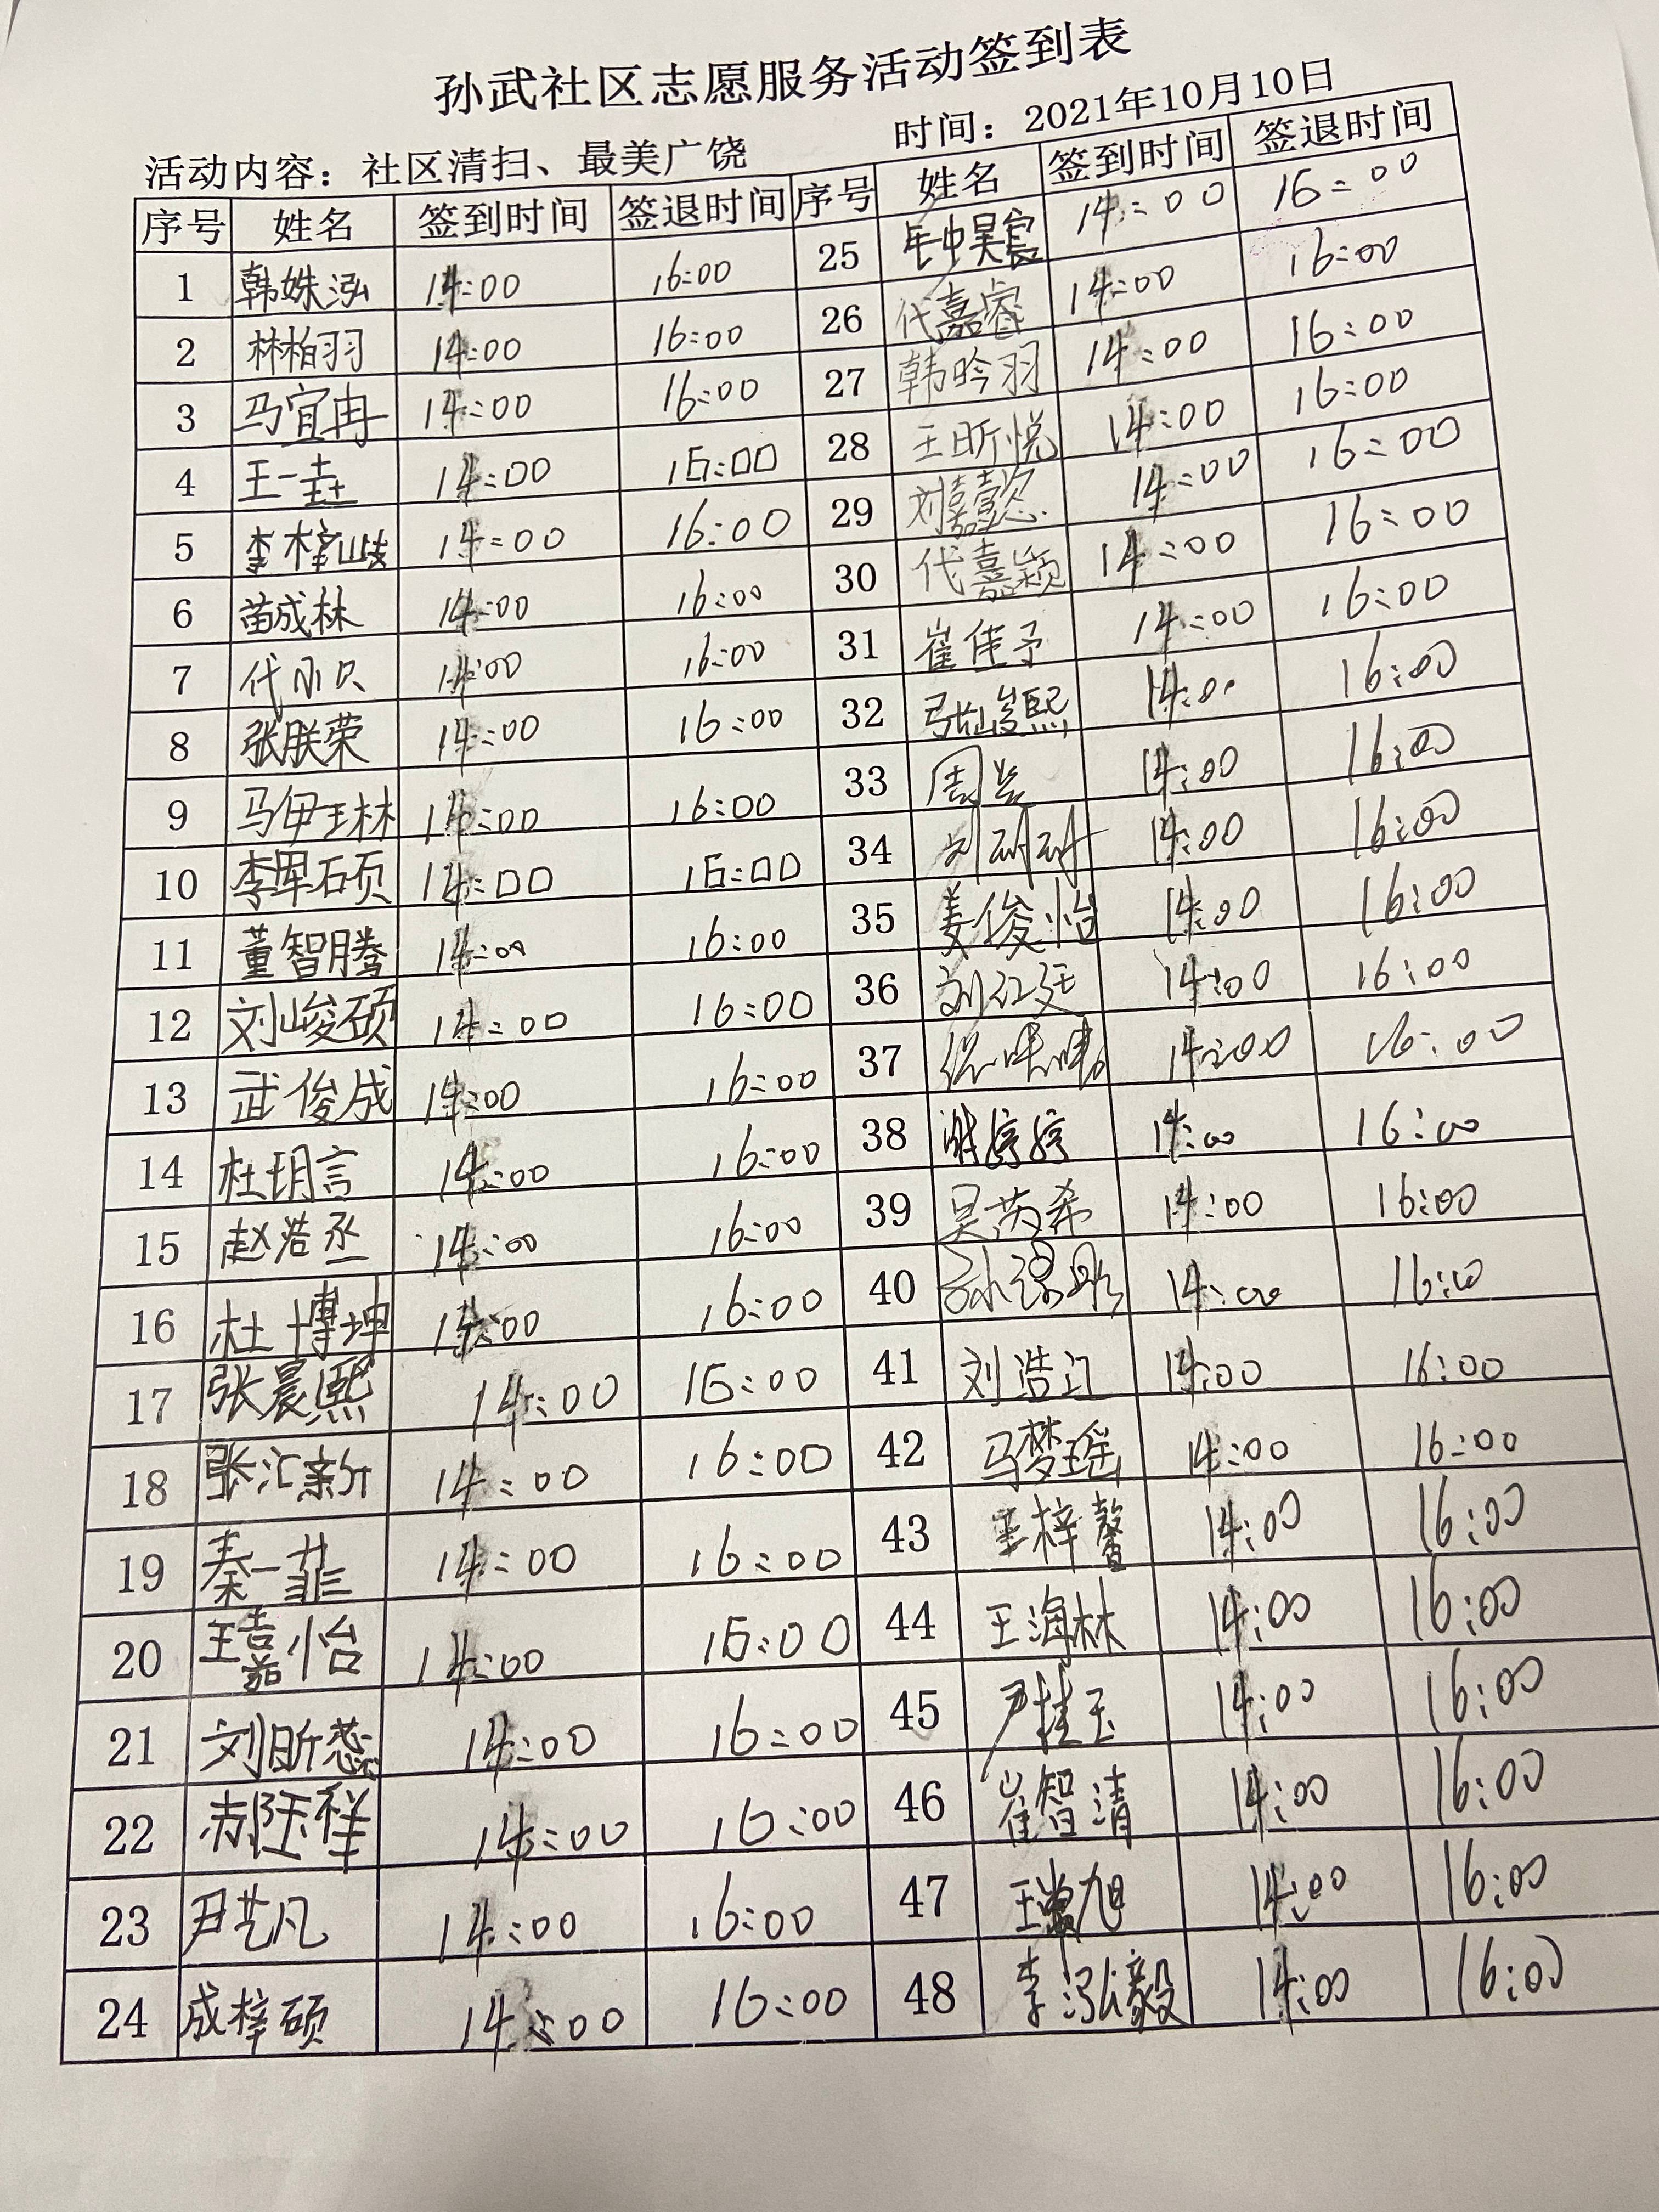 孙武社区志愿服务活动签到表
活动内容：社区清扫、最美广饶 时间：2021年10月10日
序号 姓名 签到时间 签退时间 序号 姓名 签到时间 签退时间
1 韩姝泓 14:00 16:00 25 14:00 16:00
2 林柏羽 14:00 16:00 26 代嘉睿 14:00 16:00
3 马宜冉 14:00 16:00 27 韩昤羽 14:00 16:00
4 王一 14:00 16:00 28 王昕悦 14:00 16:00
5 李梓岐 14:00 16:00 29 刘嘉懿 14:00 16:00
6 苗成林 14:00 16:00 30 代嘉颖 14:00 16:00
7 14:00 16:00 31 崔佳予 14:00 16:00
8 张朕荣 14:00 16:00 32 张峻熙 14:00 16:00
9 马伊琳 14:00 16:00 33 周 14:00 16:00
10 李珲硕 14:00 16:00 34 14:00 16:00
11 董智腾 14:00 16:00 35 姜俊怡 14:00 16:00
12 刘峻硕 14:00 16:00 36 刘红廷 14:00 16:00
13 武俊成 14:00 16:00 37 14:00 16:00
14 杜玥言 14:00 16:00 38 谢婷婷 14:00 16:00
15 赵浩丞 14:00 16:00 39 吴芮希 14:00 16:00
16 杜博坤 14:00 16:00 40 14:00 16:00
17 张晨熙 14:00 16:00 41 刘浩江 14:00 16:00
18 张汇新 14:00 16:00 42 马梦瑶 14:00 16:00
19 秦一菲 14:00 16:00 43 李梓馨 14:00 16:00
20 王嘉怡 14:00 16:00 44 王海林 14:00 16:00
21 刘昕蕊 14:00 16:00 45 尹桂玉 14:00 16:00
22 14:00 16:00 46 崔智清 14:00 16:00
23 尹艺凡 14:00 16:00 47 14:00 16:00
24 成梓硕 14:00 16:00 48 李泓毅 14:00 16:00